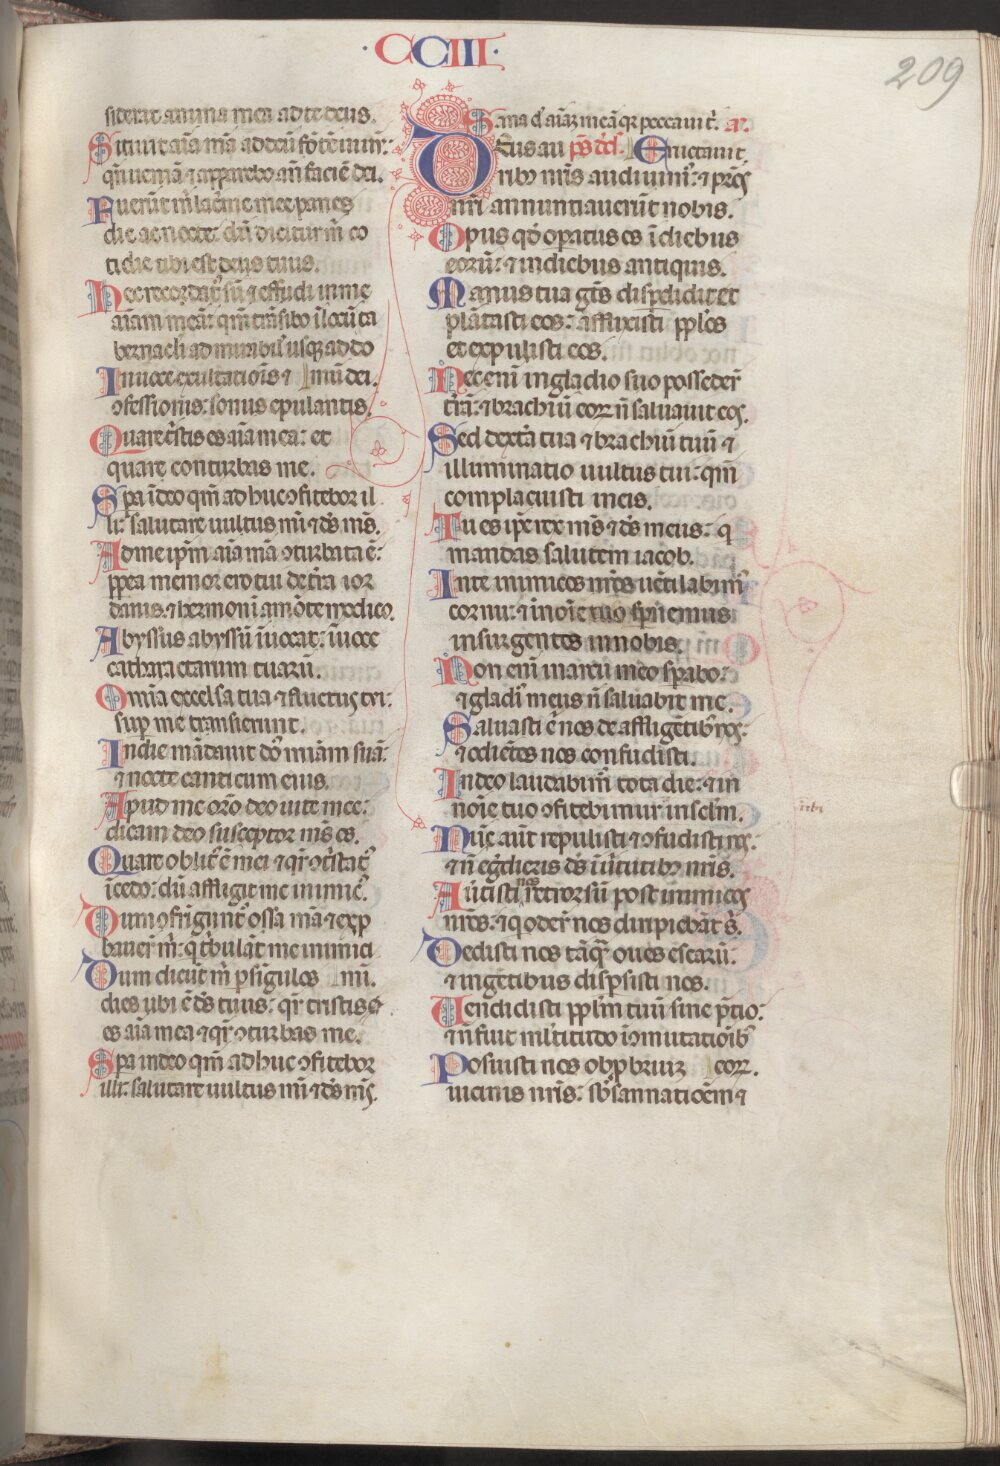 ·CCIII·
209
siderat anima mea ad te deus.
Sitiuit aīa mā ad deū fōtē uiuū:
qn̄ ueniā ⁊ apparebo an̄ faciē dei.
Fuerūt m̄ lac̄me mee panes
die ac nocte: dū dicitur m̄ co
tidie ubi est deus tuus.
Hec recordat᷒ sū ⁊ effudi in me
aīam meā: qm̄ trāsibo ī locū ta
bernacli admirabil᷒ usq; ad do
In uoce exultatiōis ⁊ mū dei.
ↄfessionis: sonus epulantis.
Quare t̄stis es aīa mea: et
quare conturbas me.
Spa ī deo qm̄ adhuc ↄfitebor il
li: salutare uultus mī ⁊ ds̄ ms̄.
Ad me ip̄m aīa mā ↄturbata ē:
pp̄ea memor ero tui de t̄ra ior
danis: ⁊ hermoniī a mōte modico.
Abyssus abyssū īuocat: ī uoce
catharactarum tuarū.
Omīa excelsa tua ⁊ fluctus tui:
sup̄ me transierunt.
In die mādauit dn̄s miām suā:
⁊ nocte canticum eius.
Apud me orō deo uite mee:
dicam deo susceptor ms̄ es.
Quare oblit᷒ ē mei ⁊ qr̄ ↄtstat᷒
īcedo: dū affligit me inimic᷒.
Dum ↄfringunt᷒ ossa mā ⁊ exp
bauer̄ m̄: q̄ t̄bulāt me inimici
Dum dicūt m̄ p̄ sigulos mī.
dies ubi ē ds̄ tuus: qr̄ tristis
es aīa mea ⁊ qr̄ ↄturbas me.
Spa in deo qm̄ adhuc ↄfitebor
illi: salutare uultus mī ⁊ ds̄ ms̄.
Sana dn̄e aīaz meā qr peccaui t᷒.
Deus au ps̄ dd. Eructauit
ribȝ nr̄is audiuim᷒: ⁊ pr̄es
nr̄i annuntiauerūt nobis.
Opus qd̄ op̄atus es ī diebus
eorū: ⁊ in diebus antiquis.
Manus tua gēs disp̄didit et
plātasti eos: afflixisti pp̄los
et expulisti eos.
Nec enī in gladio suo posseder̄
t̄rā: ⁊ brachiū eorȝ n̄ saluauit eos.
Sed dext̄a tua ⁊ brachiū tuū ⁊
illuminatio uultus tui: qm̄
complacuisti in eis.
Tu es ip̄e rex ms̄ ⁊ ds̄ meus: q
mandas salutem iacob.
In te inimicos nr̄os uētilabim᷒
cornu: ⁊ in noīe tuo sp̄nemus
insurgentes in nobis.
Non enī in arcu meo sp̄abo:
⁊ gladi᷒ meus n̄ saluabit me.
Saluasti ē nos de affligētibȝ nos:
⁊ odiētes nos confudisti.
In deo laudabim᷒ tota die: ⁊ in
noīe tuo ↄfitebimur in sclm̄.
Nūc aūt repulisti ⁊ ↄfudisti nos:
⁊ n̄ eg̅dieris ds̄ ī uirtutibȝ nr̄is.
Au̅tisti nos retrorsū post inimicos
nr̄os: ⁊ q oder̄ nos diripiebāt s᷒.
Dedisti nos tāq̄ oues escarū:
⁊ in gētibus disp̄sisti nos.
Uendidisti pp̄lm tuū sine p̄tio:
⁊ n̄ fuit mltitudo ī ↄmutatiōibȝ
Posuisti nos obp̄briuȝ eorȝ.
uicinis nr̄is: sb̄sannatioēm ⁊